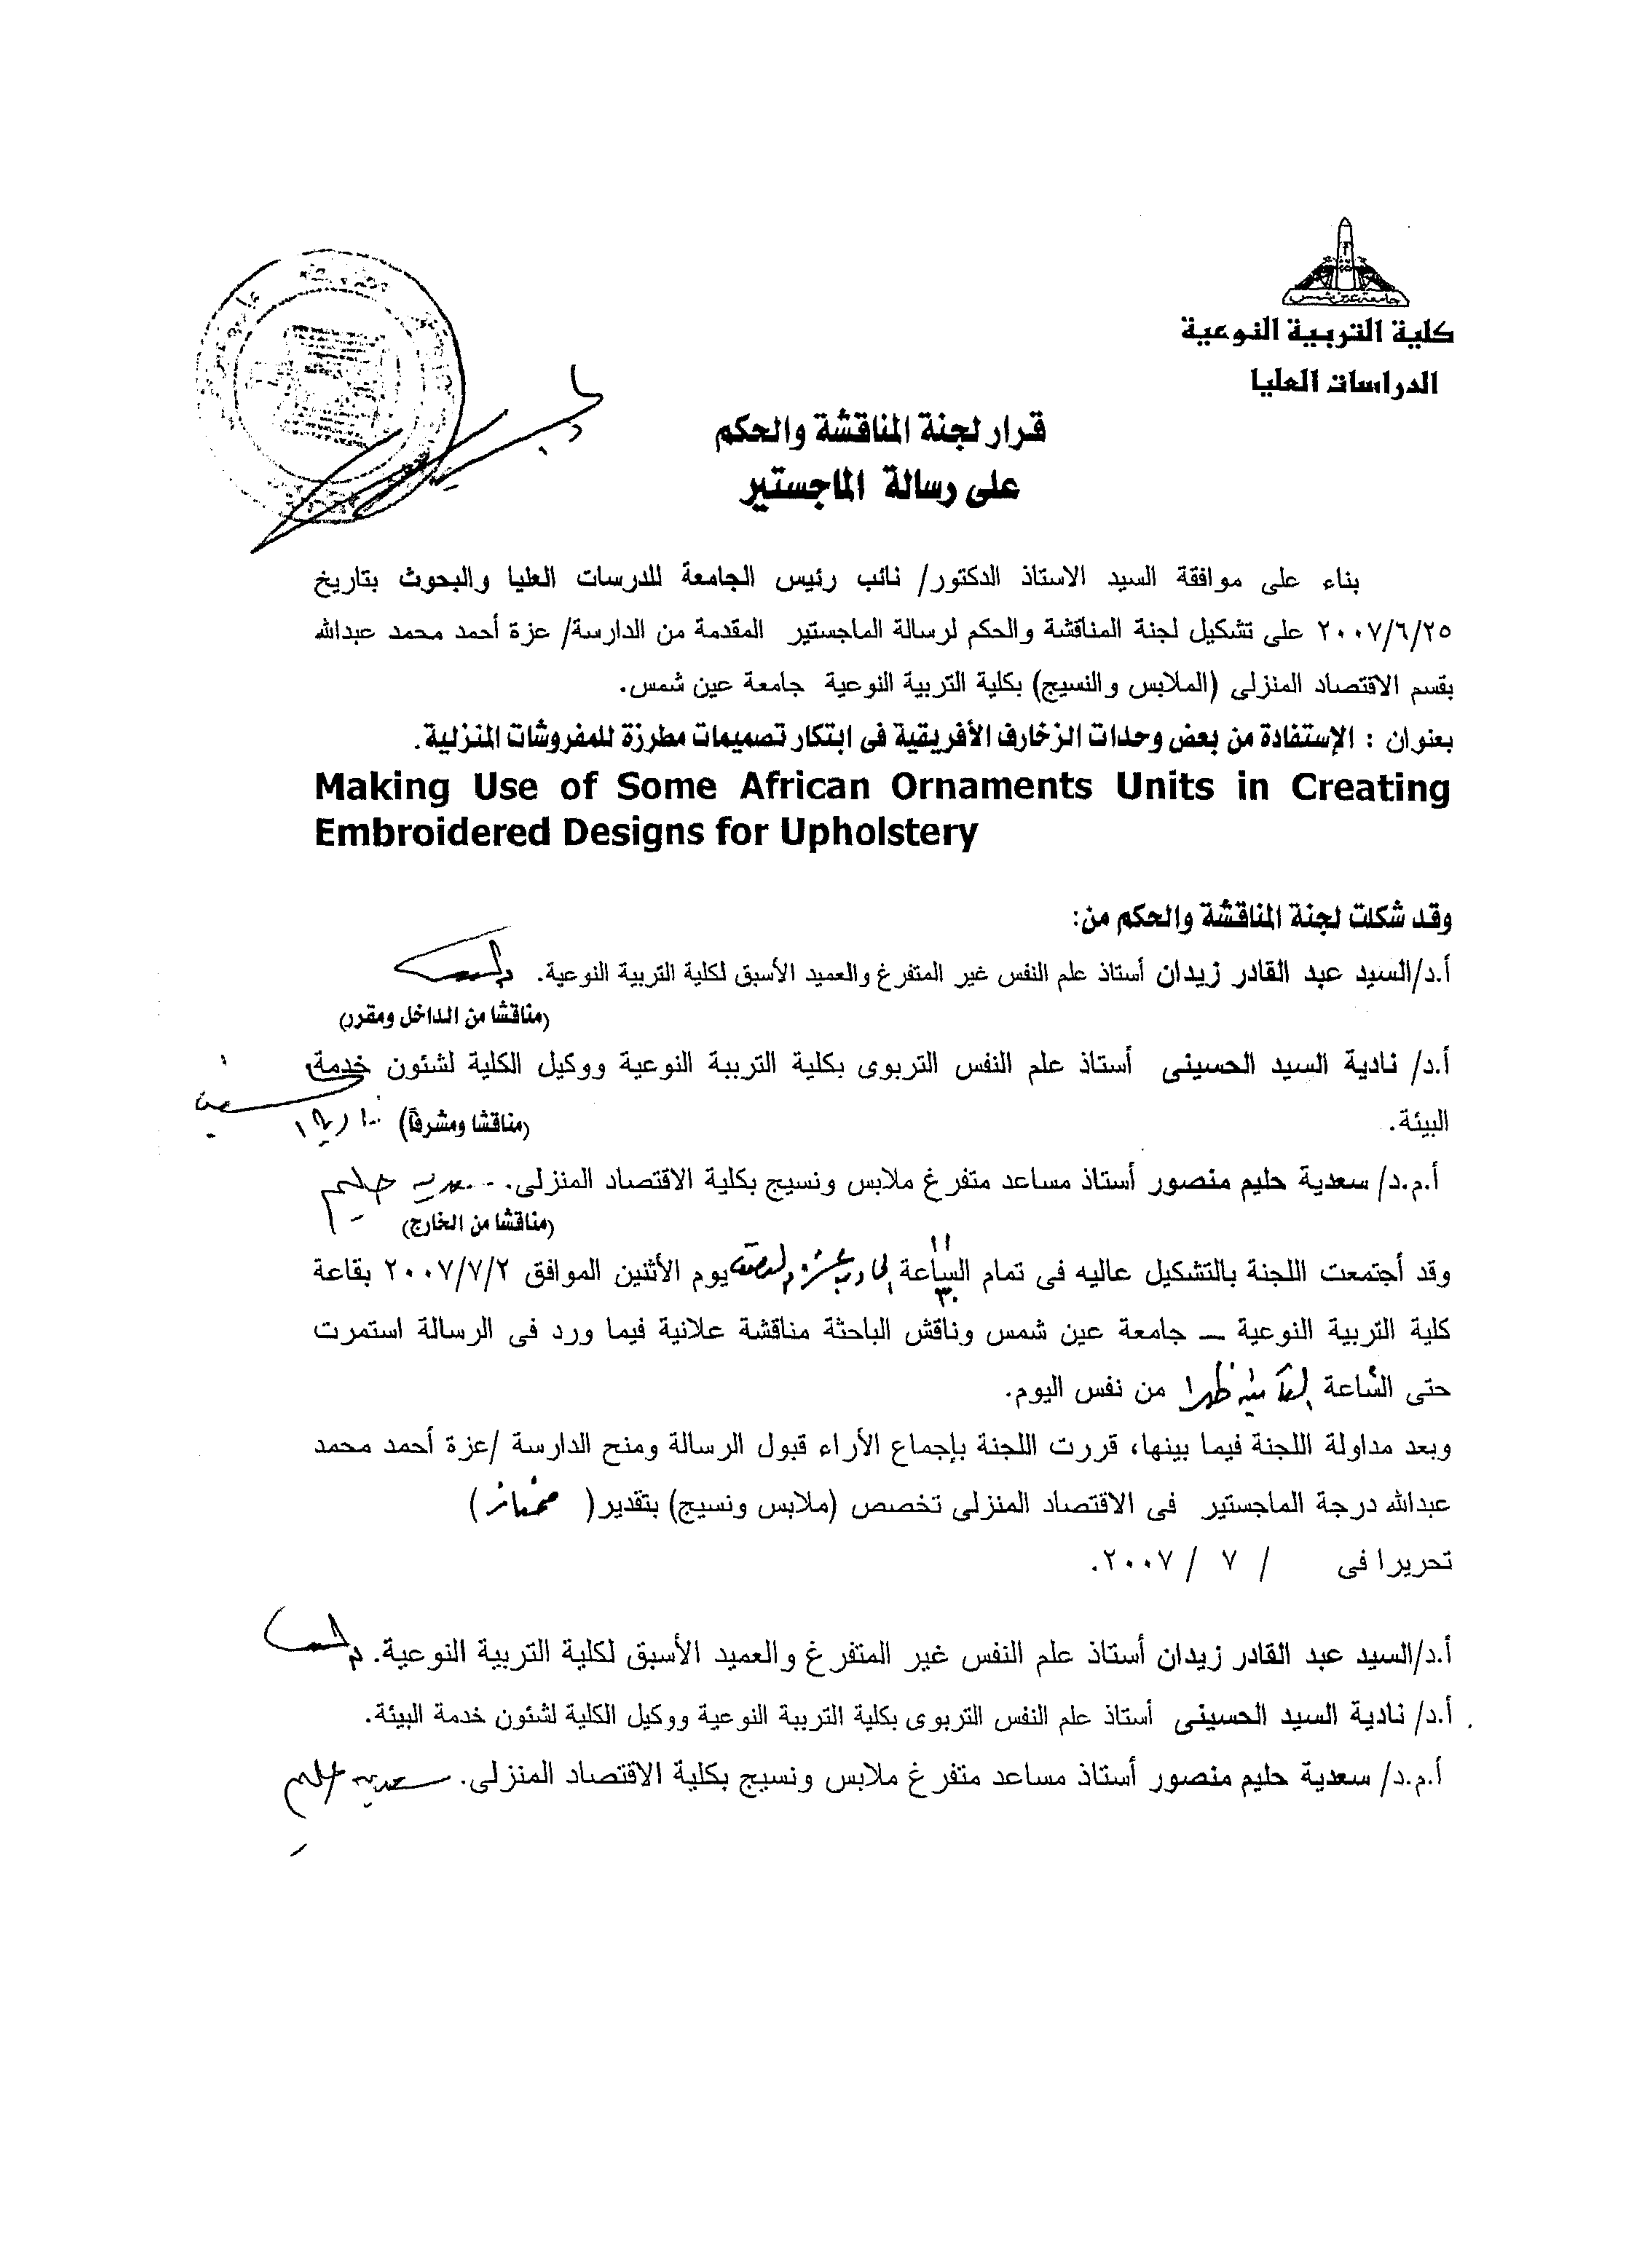 جامعة عين شمس
كلية التربية النوعية
الدراسات العليا
قرار لجنة المناقشة والحكم
على رسالة الماجستير
بناء على موافقة السيد الاستاذ الدكتور/ نائب رئيس الجامعة للدرسات العليا والبحوث بتاريخ
٢٠٠٧/٦/٢٥ على تشكيل لجنة المناقشة والحكم لرسالة الماجستير المقدمة من الدارسة/ عزة أحمد محمد عبدالله
بقسم الاقتصاد المنزلى (الملابس والنسيج) بكلية التربية النوعية جامعة عين شمس.
بعنوان : الإستفادة من بعض وحدات الزخارف الأفريقية فى ابتكار تصميمات مطرزة للمفروشات المنزلية.
Making Use of Some African Ornaments Units in Creating
Embroidered Designs for Upholstery
وقد شكلت لجنة المناقشة والحكم من:
أ.د/السيد عبد القادر زيدان أستاذ علم النفس غير المتفرغ والعميد الأسبق لكلية التربية النوعية.
(مناقشا من الداخل ومقرر)
أ.د/ نادية السيد الحسينى أستاذ علم النفس التربوى بكلية التربية النوعية ووكيل الكلية لشئون خدمة
البيئة. (مناقشا ومشرفاً)
أ.م.د/ سعدية حليم منصور أستاذ مساعد متفرغ ملابس ونسيج بكلية الاقتصاد المنزلى. سعدية حليم
(مناقشا من الخارج)
وقد أجتمعت اللجنة بالتشكيل عاليه فى تمام الساعة الحادية عشرة والنصف يوم الأثنين الموافق ٢٠٠٧/٧/٢ بقاعة
كلية التربية النوعية – جامعة عين شمس وناقش الباحثة مناقشة علانية فيما ورد فى الرسالة استمرت
حتى الساعة الثانية ظهرا من نفس اليوم.
وبعد مداولة اللجنة فيما بينها، قررت اللجنة بإجماع الأراء قبول الرسالة ومنح الدارسة /عزة أحمد محمد
عبدالله درجة الماجستير فى الاقتصاد المنزلى تخصص (ملابس ونسيج) بتقدير( ممتاز )
تحريرا فى / ٧ / ٢٠٠٧.
أ.د/السيد عبد القادر زيدان أستاذ علم النفس غير المتفرغ والعميد الأسبق لكلية التربية النوعية.
أ.د/ نادية السيد الحسينى أستاذ علم النفس التربوى بكلية التربية النوعية ووكيل الكلية لشئون خدمة البيئة.
أ.م.د/ سعدية حليم منصور أستاذ مساعد متفرغ ملابس ونسيج بكلية الاقتصاد المنزلى. سعدية حليم